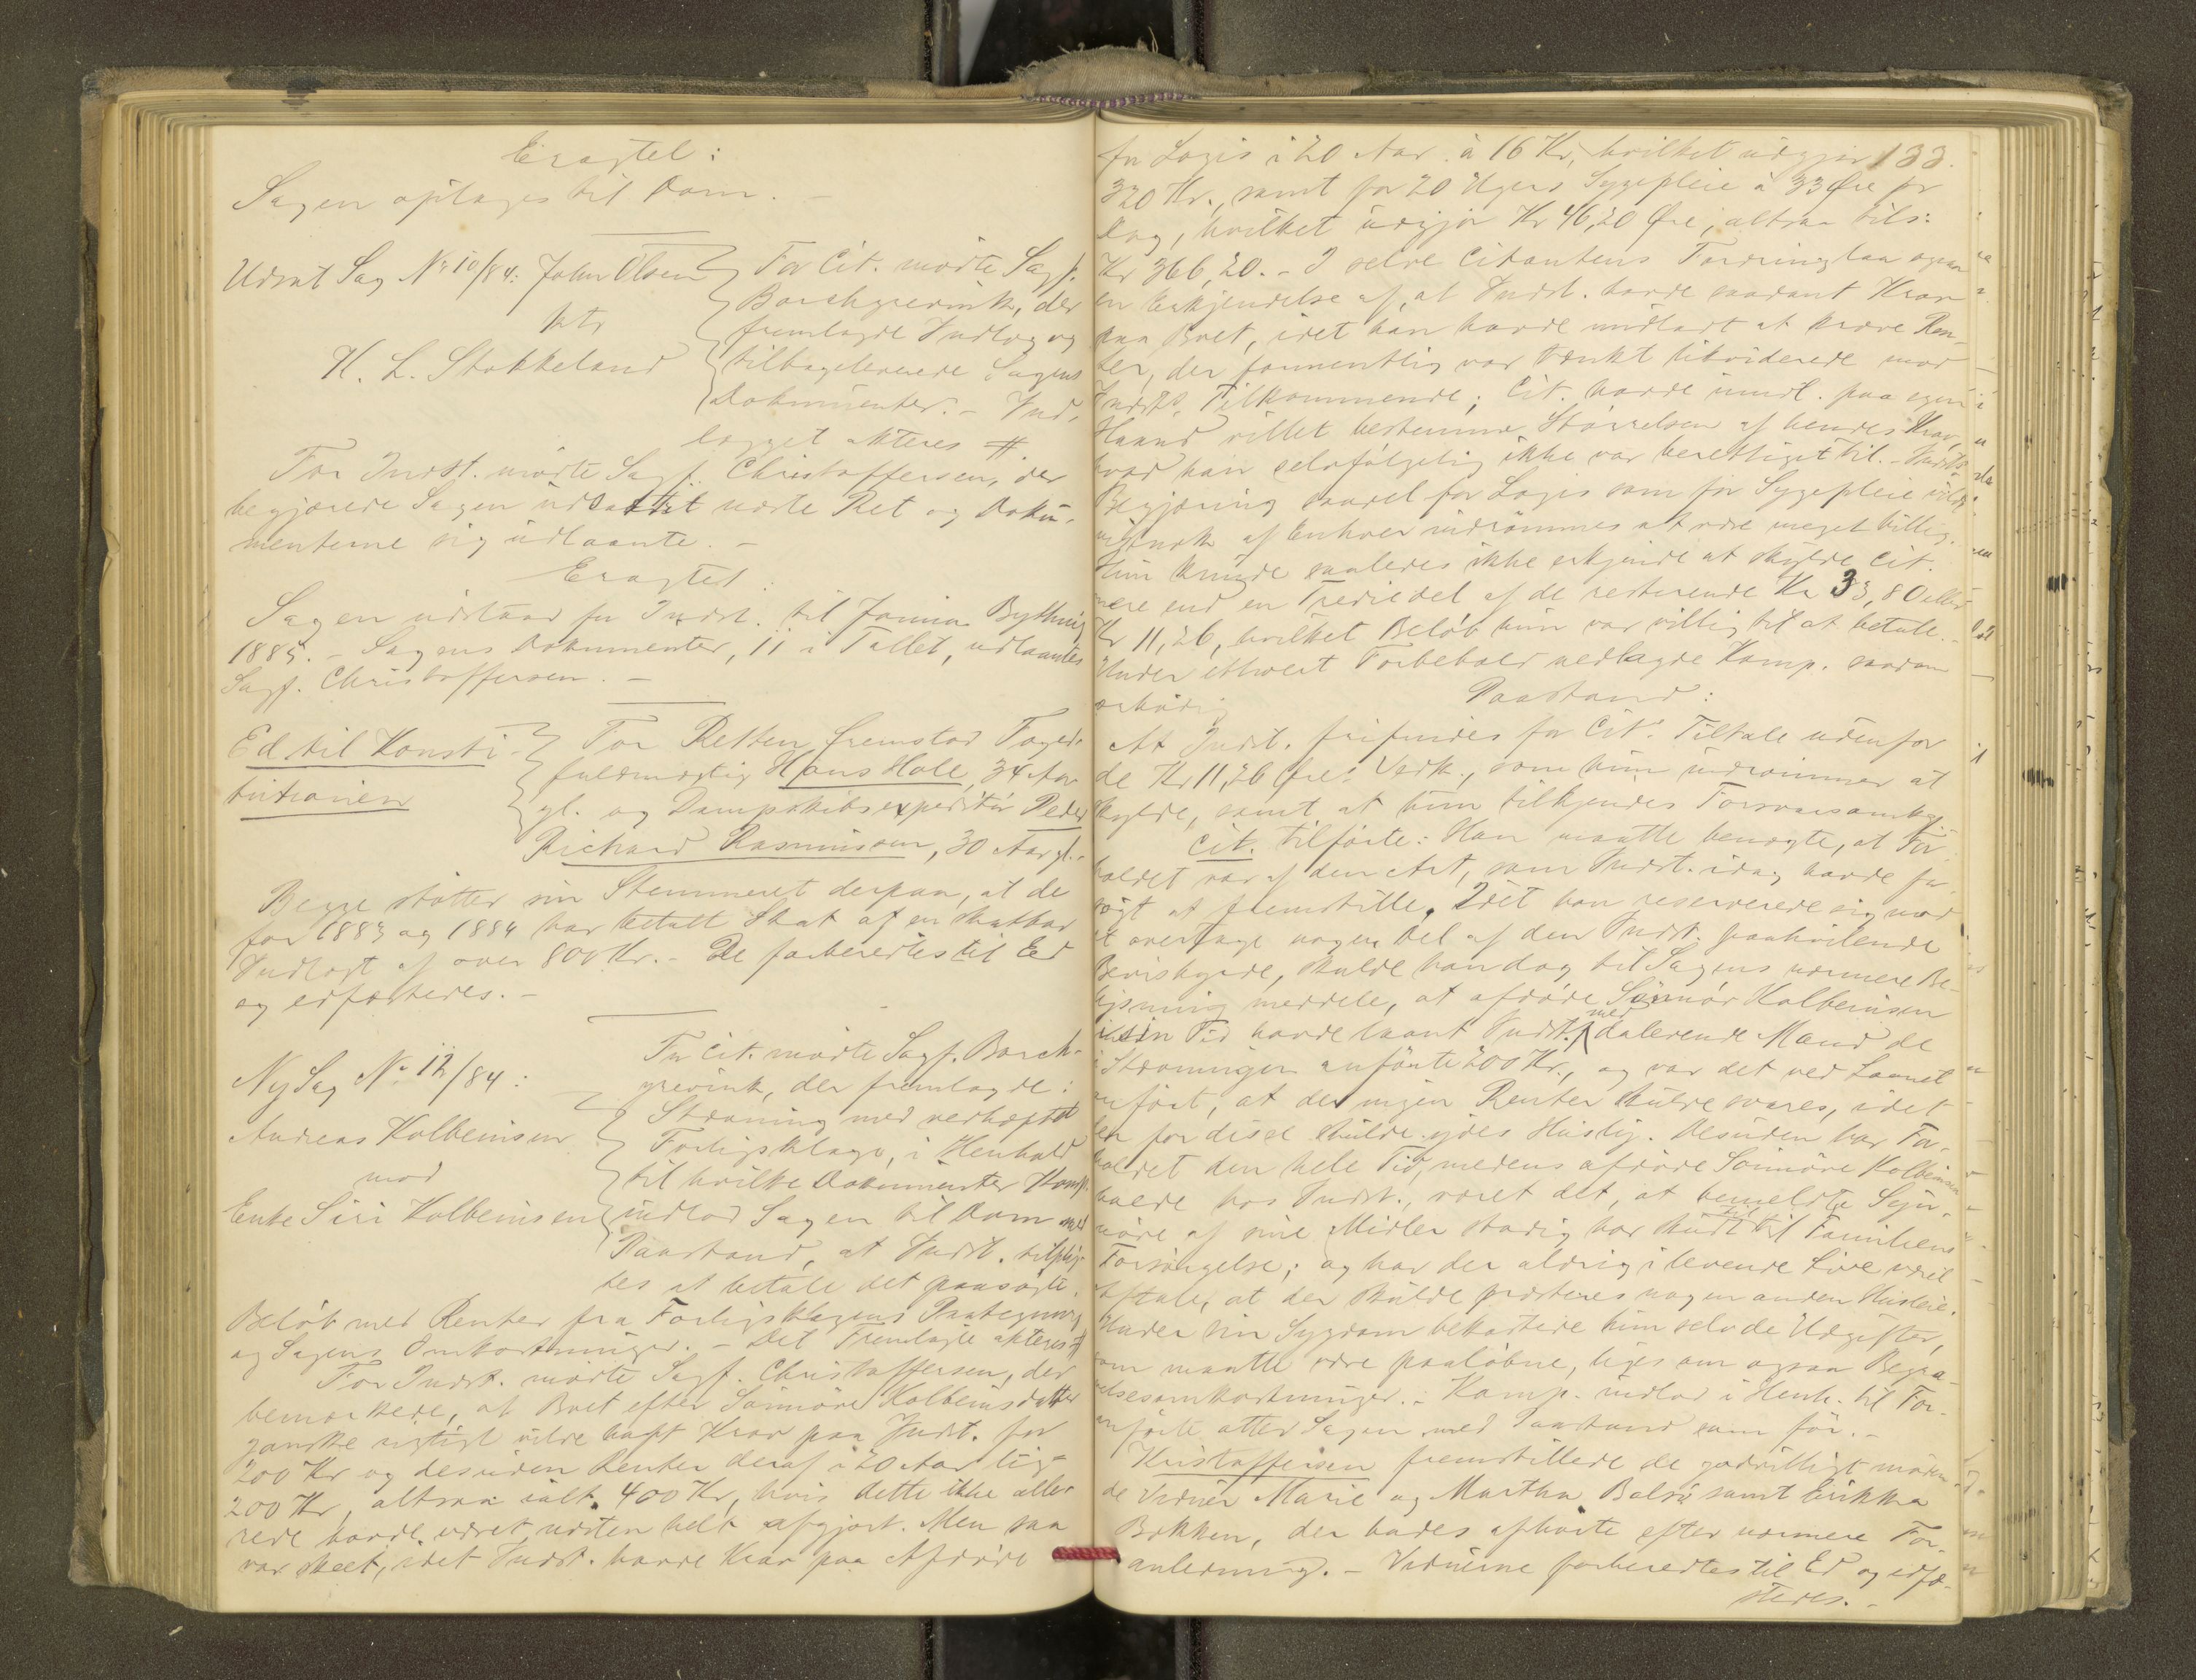 Eragtet:
Sagen optages til Dom. –
Udsat Sag No 10/84: John Olsen
ktr
H. L. Stokkeland
For Cit. mødte Sagf.
Borchgrevink, der
fremlagde Indlæg og
tilbageleverede Sagens
Dokumenter. – Ind-
lægget akteres #
For Indst. mødte Sagf. Christoffersen, der
begjærede Sagen udsat til næste Ret og Doku-
menterne sig udlaante. –
Eragtet:
Sagen udstaar for Indst. til Bything
1885. – Sagens Dokumenter, 11 i Tallet, udlaantes
Sagf. Christoffersen. –
Ed til Konsti-
tutionen
For Retten fremstod Foged-
fuldmægtig Hans Hale, 34 Aar
gl. og Dampskibsexpeditør Peder
Richard Rasmussen, 30 Aar gl. –
Begge støtter sin Stemmeret derpaa, at de
for 1883 og 1884 har betalt Skat af en skatbar
Indtægt af over 800 Kr. – De forberedtes til Ed
og edfæstedes. –
Ny Sag No 12/84:
Andreas Kolbeinsen
mod
Enke Siri Kolbeinsen
For Cit. mødte Sagf. Borch-
grevink, der fremlagde:
Stævning med vedhæftet
Forligsklage, i Henhold
til hvilke Dokumenter Komp.
indlod Sagen til Dom med
Paastand, at Indst. tilplig-
tes at betale det paasøgte
Beløb med Renter fra Forligsklagens Paategning
og Sagens Omkostninger. – Det Fremlagte akteres #
For Indst. mødte Sagf. Christoffersen, der
bemærkede, at Boet efter Sønnøve Kolbeinsdatter
ganske rigtigt vilde havt Krav paa Indst. for
200 Kr og desuden Renter deraf i 20 Aar lig
200 Kr, altsaa ialt 400 Kr, hvis dette ikke alle-
rede havde været næsten helt afgjort. Men saa
var skeet, idet Indst. havde Krav paa Afdøde
for Logis i 20 Aar à 16 Kr, hvilket udgjør 133.
320 Kr., samt for 20 Ugers Sygepleie à 33 Øre pr
Dag, hvilket udgjør Kr 46,20 Øre, altsaa tils:
Kr 366,20. – I selve Citantens Fordring laa ogsaa
en Erkjendelse af, at Indst. havde saadant Krav
paa Boet, idet han havde undladt at kræve Ren-
ter, der formentlig var tænkt likviderede mod
Indsts. Tilkommende; Cit. havde imidl. paa egen
Haand villet bestemme Størrelsen af hendes Krav,
hvad han selvfølgelig ikke var berettiget til. – Indsts
Begjæring saavel for Logis som for Sygepleie vilde
vistnok af Enhver indrømmes at være meget billig.
Hun kunde saaledes ikke erkjende at skylde Cit.
mere end en Trediedel af de resterende Kr 33,80 eller
Kr 11,26, hvilket Beløb hun var villig til at betale. –
Under ethvert Forbehold nedlagde Komp. saadan
ærbødig
Paastand:
At Indst. frifindes for Cits Tiltale udenfor
de Kr 11,26 Øres Vedk., som hun indrømmer at
skylde, samt at hun tilkjendes Forsvarsomkg.
Cit. tilførte: Han maatte benægte, at For-
holdet var af den Art, som Indst. idag havde for-
søgt at fremstille. Idet han reserverede sig mod
at overtage nogen Del af den Indst. paahvilende
Bevisbyrde, skulde han dog til Sagens nærmere Be-
lysning meddele, at afdøde Sønnøv Kolbeinsen
i sin Tid havde laant Indsts med dalevende Mand de
i Stævningen anførte 200 Kr., og var det ved Laanet
anført, at der ingen Renter skulde svares, idet
der for disse skulde ydes Husly. Desuden har For-
holdet den hele Tid, medens afdøde Sønnøve Kolbeinsen
boede hos Indst., været det, at bemeldte Syn-
nøve af sine Midler stadig har skudt til til Familiens
Forsørgelse; og har der aldrig i levende Live været
Aftale, at der skulde præsteres nogen anden Husleie.
Under sin Sygdom bekostede hun selv de Udgifter,
som maatte være paaløbne, ligesom ogsaa Begra-
velsesomkostninger. – Komp. indlod i Henh. til For-
anførte atter Sagen med Paastand som før. –
Kristoffersen fremstillede de godvilligt møden-
de Vidner Marie og Martha Balsø samt Erikka
Bakken, der bades afhørte efter nærmere For-
anledning. – Vidnerne forberedtes til Ed og edfæ-
stedes. –